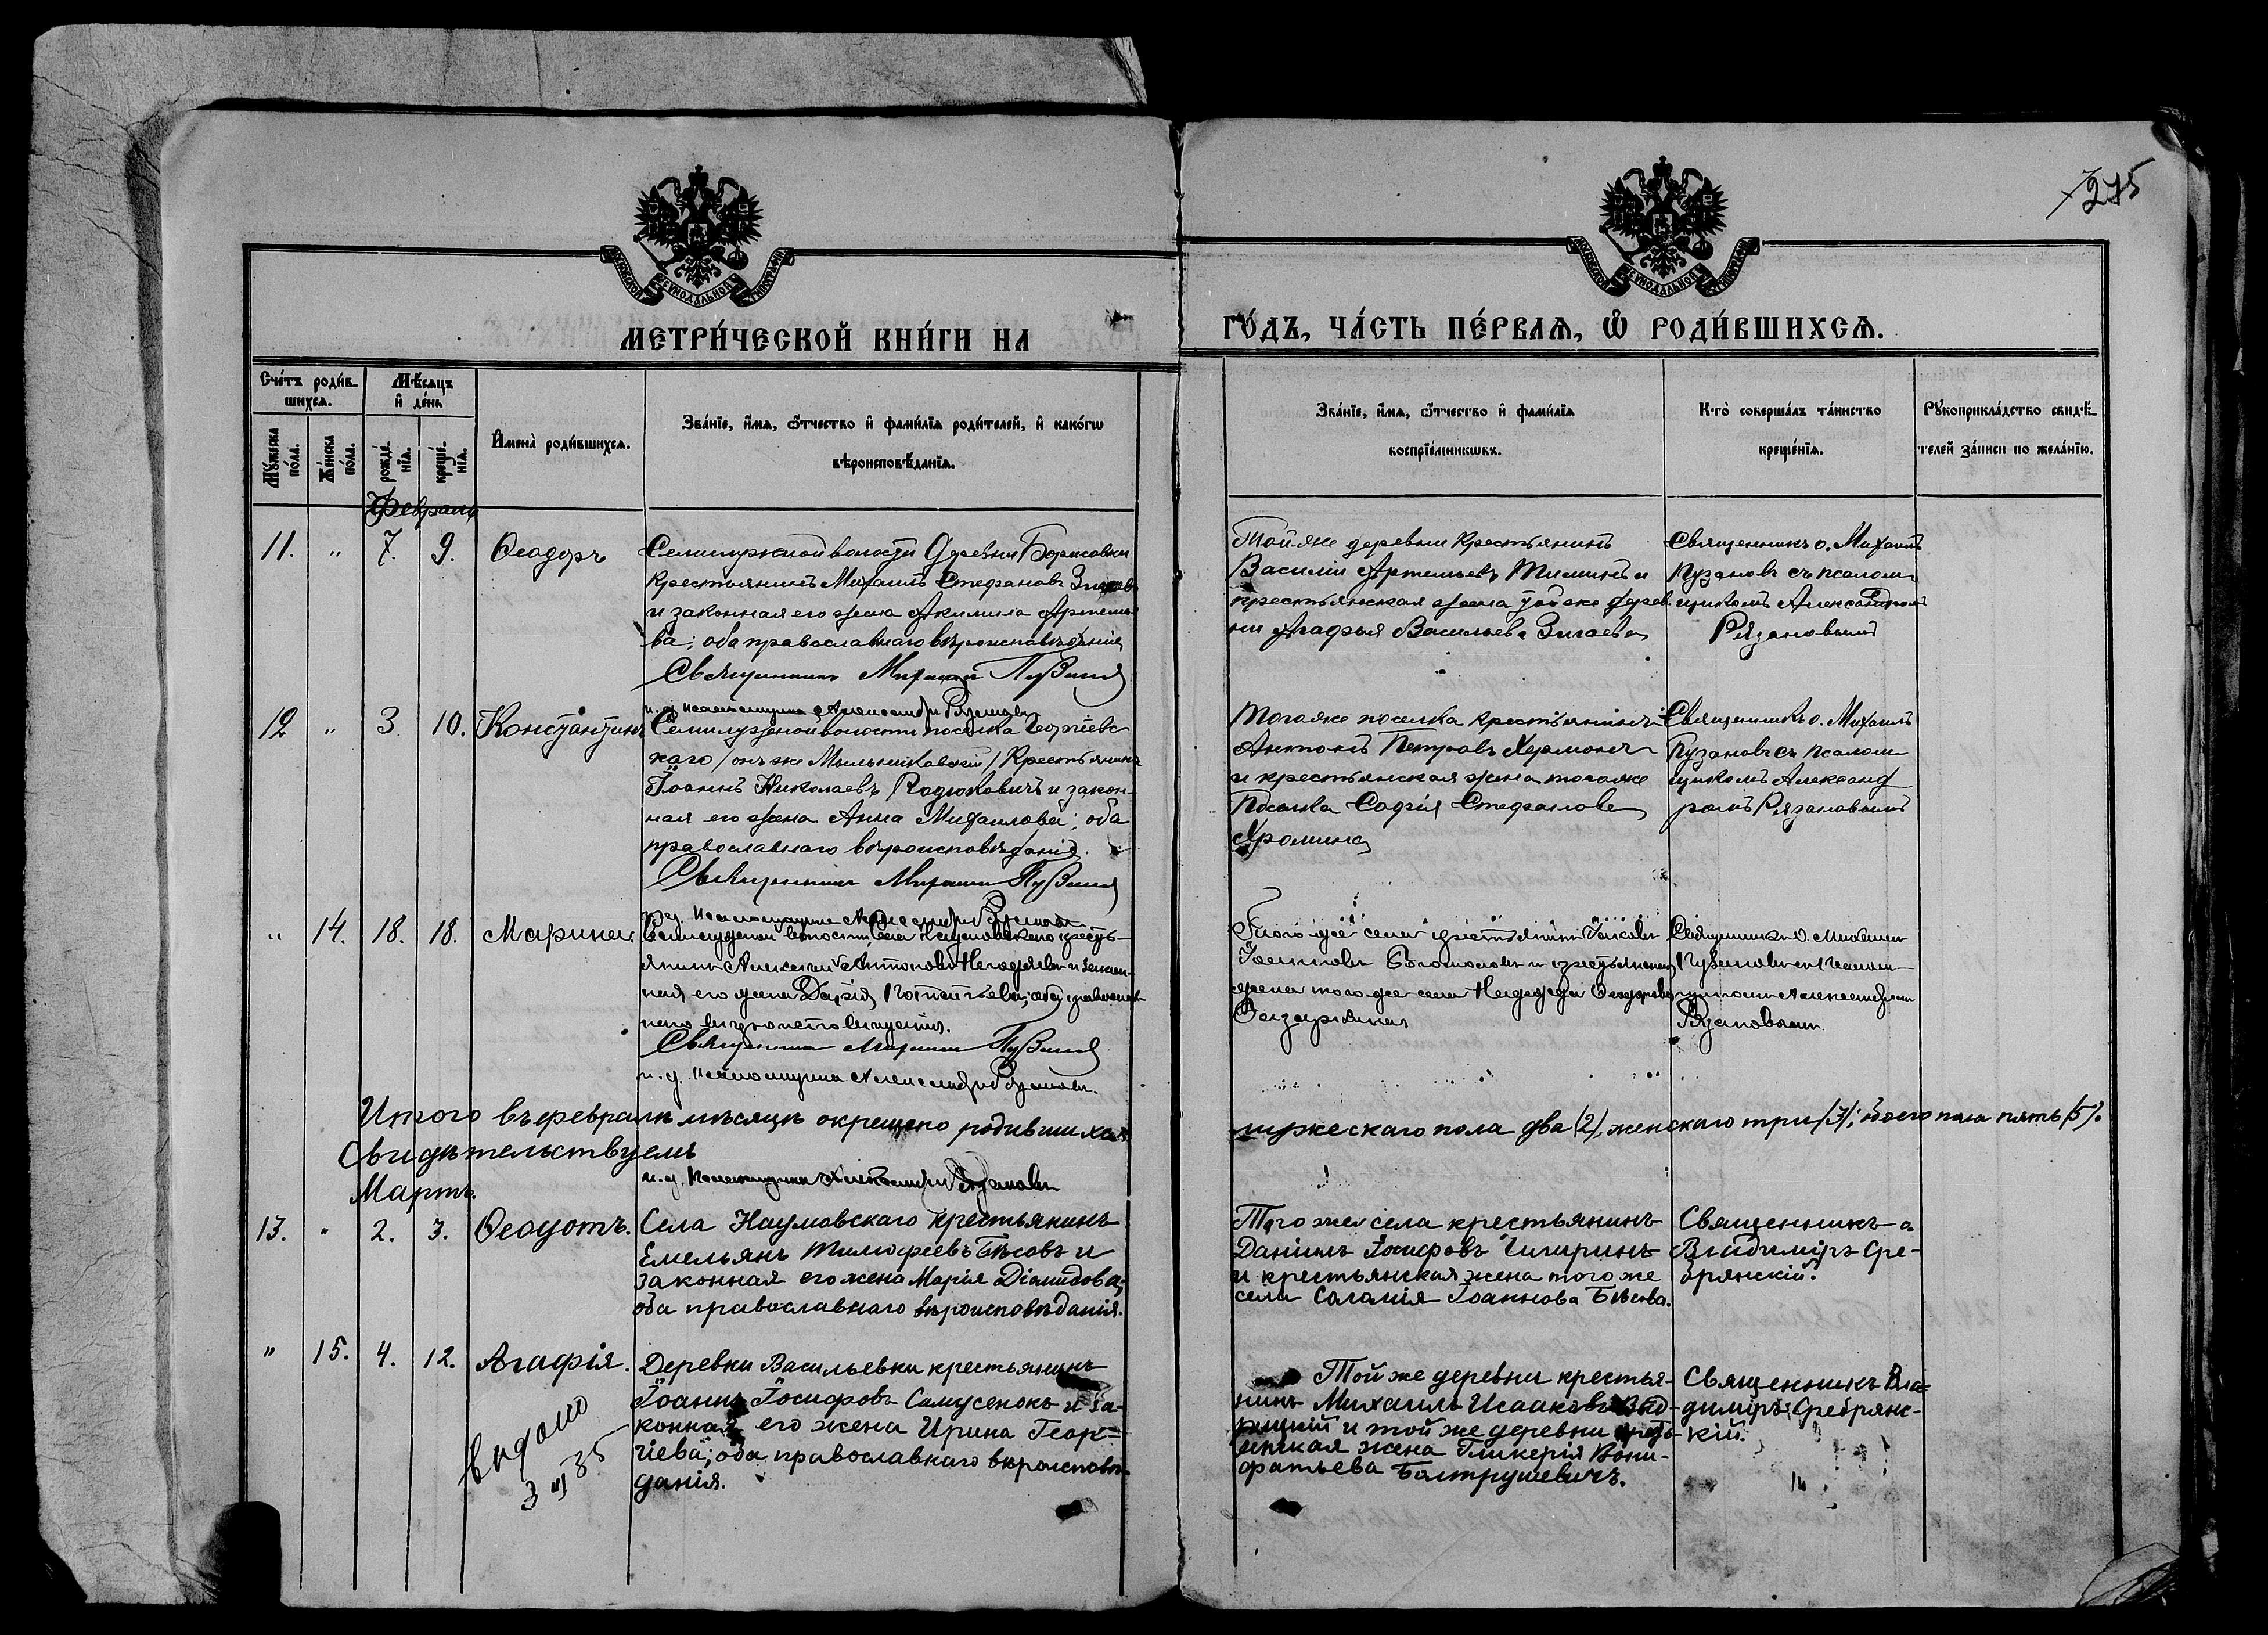 275
МЕТРИ́ЧЕСКОЙ КНИ́ГИ НА ГО́ДЪ, ЧА́СТЬ ПЕ́РВАѦ, Ѿ РОДИ́ВШИХСѦ.
Сче́тъ роди́в-
шихсѧ.
Мѣ́сяцъ
и де́нь
Мꙋ́жеска по́ла.
Же́нска по́ла.
рожде́нїѧ.
креще́нїѧ.
Имена̀ роди́вшихсѧ.
Зва́нїе, и́мѧ, ѻ҆́тчество и фами́лїѧ роди́телей, и како́гѡ
вѣроисповѣ́данїѧ.
Зва́нїе, и́мѧ, ѻ҆́тчество и фами́лїѧ
воспрїе́мникѡвъ.
Кто̀ соверша́лъ та́инство
креще́нїѧ.
Рꙋкоприкла́дство свидѣ́-
телей за́писи по жела́нїю.
Февраль
11. " 7. 9. Ѳеодоръ
Семилужной волости деревни Борисовки
крестьянинъ Михаилъ Стефановъ Зигаев
и законная его жена Акилина Артемье
ва; оба православнаго вѣроисповѣданія
Священникъ Михаил Пузанов
и. д. псаломщика Александръ Рязановъ
Той же деревни крестьянинъ
Василій Артемьевъ Тиминъ и
крестьянская жена той же дерев
ни Агафья Васильева Зигаева
Священникъ о. Михаилъ
Пузановъ съ псалом-
щикомъ Александромъ
Рязановымъ
12 " 3. 10. Константинъ
Семилужной волости поселка Георгіевс
каго /онъ же Мыльниковскій/ Крестьянинъ
Іоаннъ Николаевъ Радюковичъ и закон-
ная его жена Анна Михаилова; оба
православнаго вѣроисповѣданія.
Священникъ Михаил Пузанов
и. д. псаломщика Александръ Рязановъ
Того же поселка крестьянинъ
Антонъ Петровъ
и крестьянская жена того же
поселка Софія Стефанова
Хромина
Священникъ о. Михаилъ
Пузановъ съ псалом-
щикомъ Александ
ромъ Рязановымъ
" 14. 18. 18. Марина.
Семилужной волости села Наумовскаго кресть-
янинъ Алексей Антоновъ и закон-
ная его жена Дарія; оба православ-
наго вѣроисповѣданія.
Священникъ Михаил Пузанов
и. д. псаломщика Александръ Рязановъ.
Того же села крестьянинъ Іаковъ
Іоанновъ Богомоловъ и крестьянская
жена того же села Надежда Ѳеодорова
Священникъ о. Михаилъ
Пузановъ съ псалом-
щикомъ Александромъ
Рязановымъ.
Итого въ февралѣ мѣсяцѣ окрещено родившихся мужескаго пола два (2), женскаго три (3); обоего пола пять (5).
Свидѣтельствуемъ
и. д. псаломщика Александръ Рязановъ
Мартъ.
13. " 2. 3. Ѳеодотъ.
Села Наумовскаго крестьянинъ
Емельянъ Тимофеевъ Бѣсовъ и
законная его жена Марія Діомидова;
оба православнаго вѣроисповѣданія.
Того же села крестьянинъ
Даніилъ Іосифовъ Чигиринъ
и крестьянская жена того же
села Саломія Іоаннова Бѣсова.
Священникъ
Владиміръ Сре-
брянскій.
" 15. 4. 12. Агафія.
выдано
3 III 35
Деревни Васильевки крестьянинъ
Іоаннъ Іосифовъ Самусенокъ и за-
конная его жена Ирина Геор-
гіева; оба православнаго вѣроисповѣ-
данія.
Той же деревни крестья-
нинъ Михаилъ Исааковъ
и той же деревни кресть-
янская жена Гликерія Вони-
фатьева Болтрушевичъ.
Священникъ Вла-
диміръ Сребрянс-
кій.